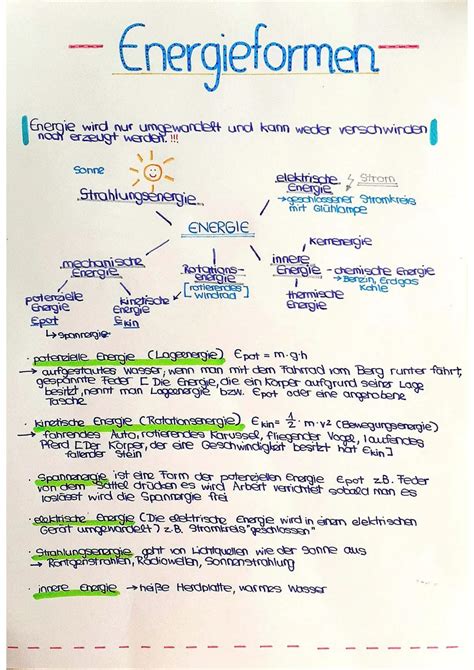 Energieformen
Energie wird nur umgewandelt und kann weder verschwinden
noch erzeugt werden!!!
Sonne
Strahlungsenergie
elektrische
Energie
Strom
→ geschlossener Stromkreis
mit Glühlampe
ENERGIE
mechanische
Energie
Rotations-
energie
[rotierendes
windrad]
innere
Energie
Kernenergie
chemische Energie
→ Benzin, Erdgas
Kohle
thermische
Energie
potenzielle
Energie
Epot
↳ Spannergie
kinetische
Energie
Ekin
· potenzielle Energie (Lageenergie) Epot = m·g·h
→ aufgestautes Wasser, wenn man mit dem Fahrrad vom Berg runter fährt,
gespannte Feder [Die Energie, die ein Körper aufgrund seiner Lage
besitzt, nennt man Lageenergie bzw. Epot oder eine angehobene
Tasche
· kinetische Energie (Rotationsenergie) Ekin = 1/2 · m · v² (Bewegungsenergie)
→ fahrendes Auto, rotierendes Karussel, fliegender Vogel, laufendes
Pferd [Der Körper, der eine Geschwindigkeit besitzt hat Ekin]
fallender Stein
· Spannenergie ist eine Form der potenziellen Energie Epot z.B. Feder
von dem Sattel drücken es wird Arbeit verrichtet sobald man es
loslässt wird die Spannergie frei
· elektrische Energie (Die elektrische Energie wird in einem elektrischen
Gerät umgewandelt) z.B. Stromkreis "geschlossen"
· Strahlungsenergie geht von Lichtquellen wie der Sonne aus
→ Röntgenstrahlen, Radiowellen, Sonnenstrahlung
· innere Energie → heiße Herdplatte, warmes Wasser